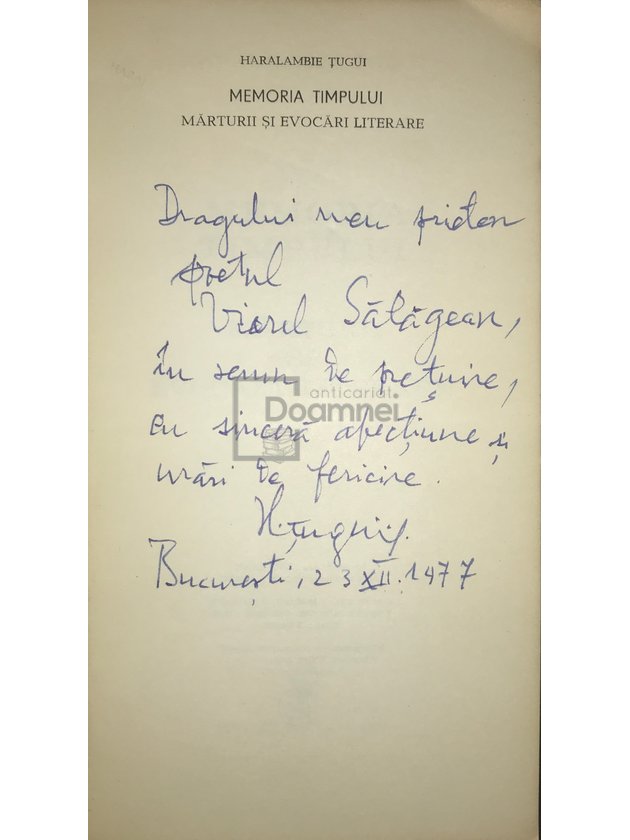 HARALAMBIE ȚUGUI
MEMORIA TIMPULUI
MĂRTURII ȘI EVOCĂRI LITERARE
Dragului meu prieten
poetul
Viorel Sălăgean,
în semn de prețuire,
anticariat
Doamnei
cu sinceră afecțiune și
urări de fericire.
H. Țugui
București, 23 XII. 1977